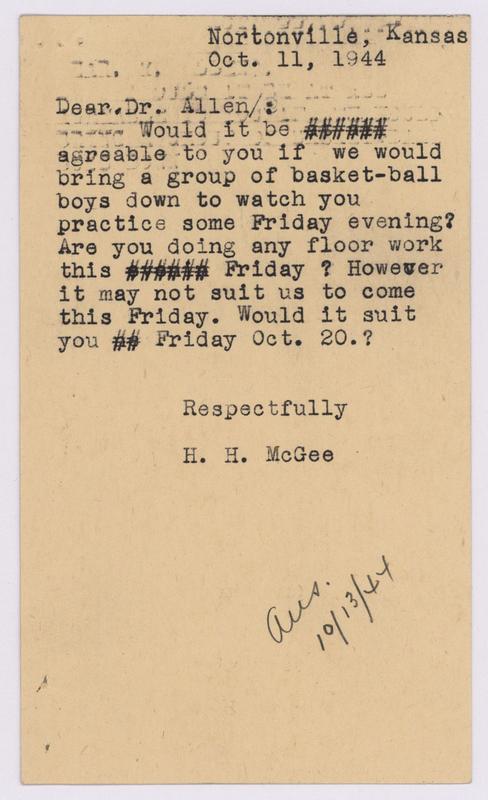 Nortonville, Kansas
Oct. 11, 1944
Dear.Dr. Allen/:
Would it be ###### 
agreable to you if we would
bring a group of basket-ball
boys down to watch you
practice some Friday evening?
Are you doing any floor work
this ###### Friday ? However
it may not suit us to come
this Friday. Would it suit
you ## Friday Oct. 20.?
Respectfully
H. H. McGee
Ans.
10/13/44